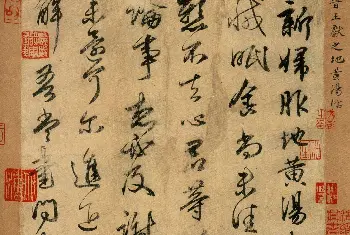 晉王獻之地黄湯帖
新婦服地黄湯
減眠食尚未佳
懸不去心君等
論事想必及謝
未還可尔進退
解吾當書問